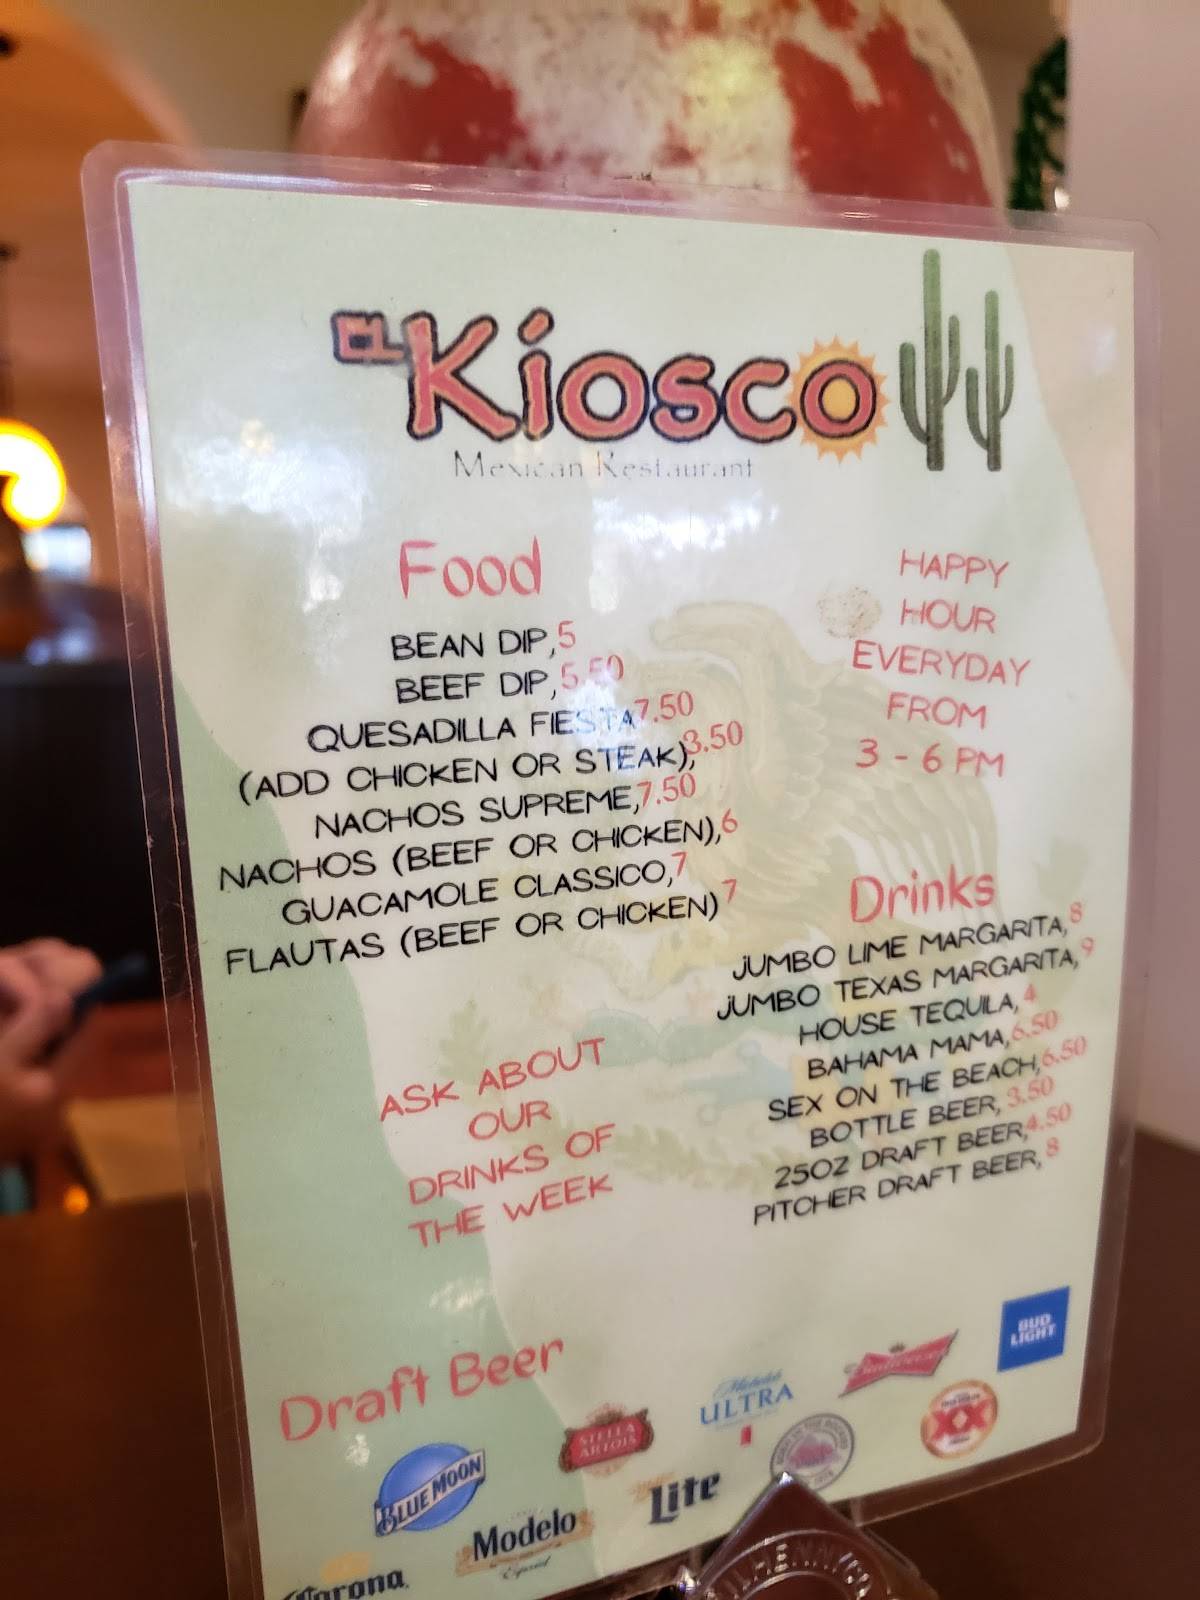 EL Kiosco
Mexican Restaurant
Food
BEAN DIP,5
BEEF DIP,5.50
QUESADILLA FIESTA7.50
(ADD CHICKEN OR STEAK),3.50
NACHOS SUPREME,7.50
NACHOS (BEEF OR CHICKEN),6
GUACAMOLE CLASSICO,7
FLAUTAS (BEEF OR CHICKEN)7
HAPPY
HOUR
EVERYDAY
FROM
3 - 6 PM
Drinks
JUMBO LIME MARGARITA,8
JUMBO TEXAS MARGARITA,9
HOUSE TEQUILA,4
BAHAMA MAMA,6.50
SEX ON THE BEACH,6.50
BOTTLE BEER, 3.50
25OZ DRAFT BEER,4.50
PITCHER DRAFT BEER,8
ASK ABOUT
OUR
DRINKS OF
THE WEEK
Draft Beer
BUD
LIGHT
Budweiser
Michelob
ULTRA
STELLA
ARTOIS
XX
BLUE MOON
Lite
Modelo
Especial
Corona